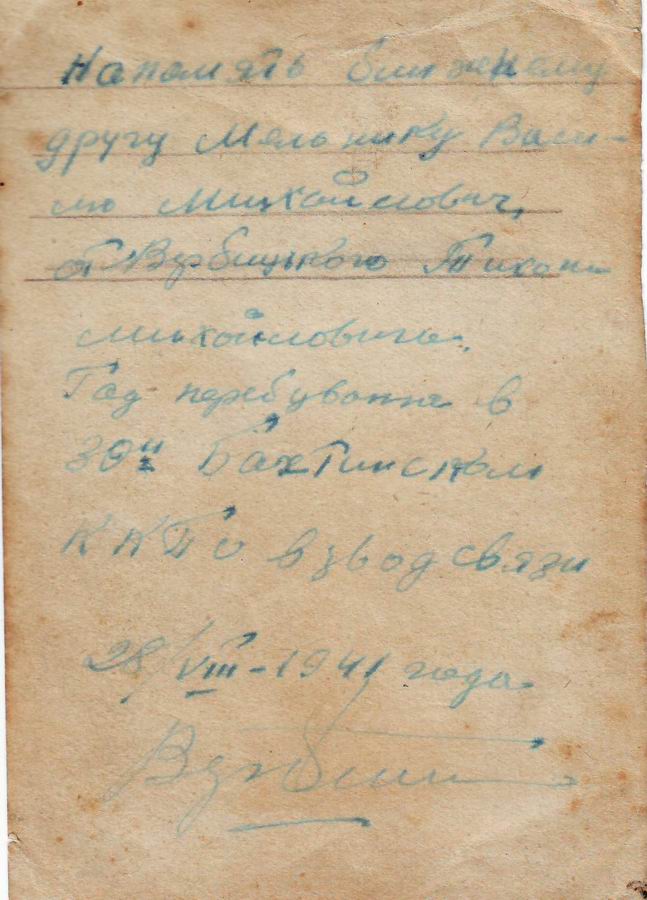 На помять близкому
другу Мельнику Васи-
лю Михайлович,
от Вербицького Тихона
Михайловича.
Год перебуванне в
30й Бахтинском
в звод связи
28/VIII-1941 года